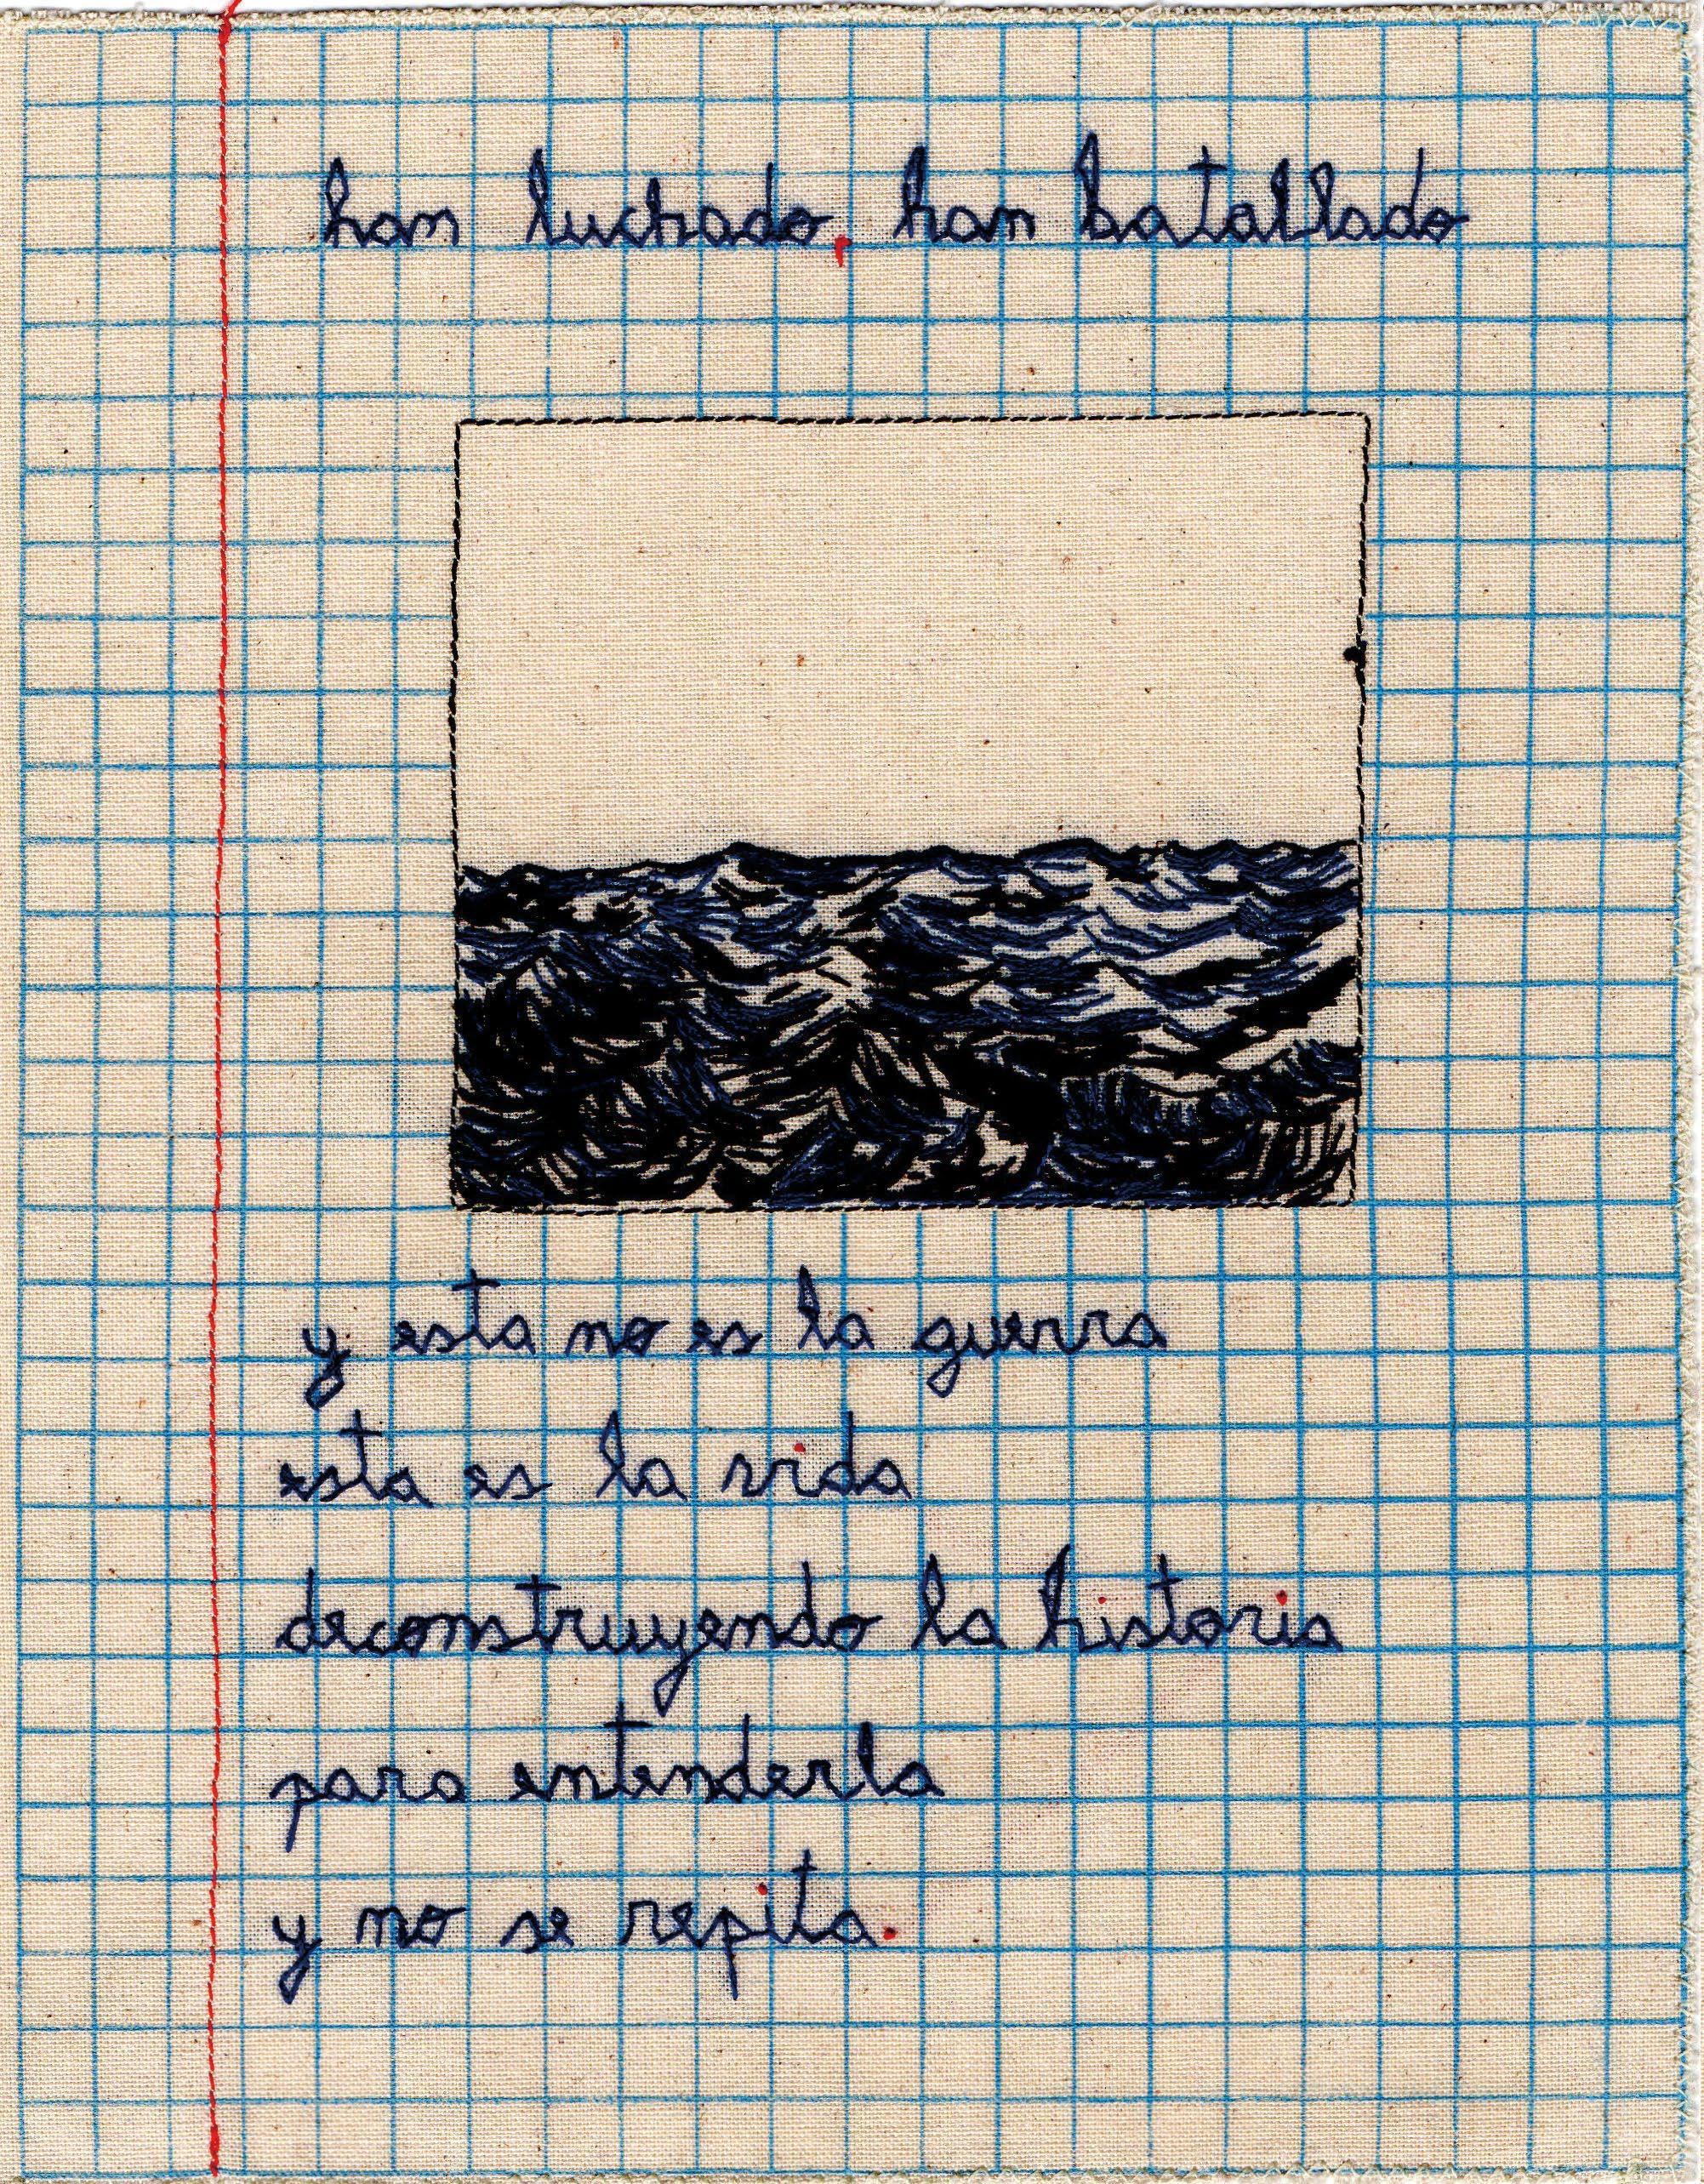 han luchado, han batallado
y esta no es la guerra
esta es la vida
deconstruyendo la historia
para entenderla
y no se repita.